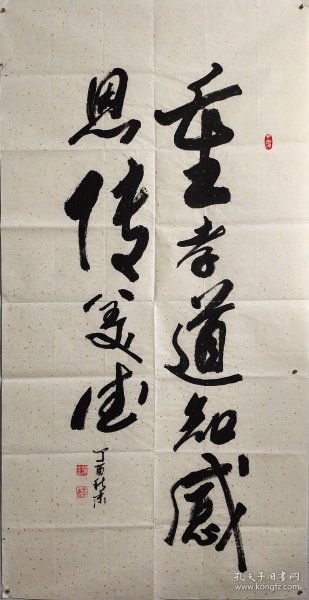 重孝道知感
恩传美德
丁酉秋末
孔夫子旧书网